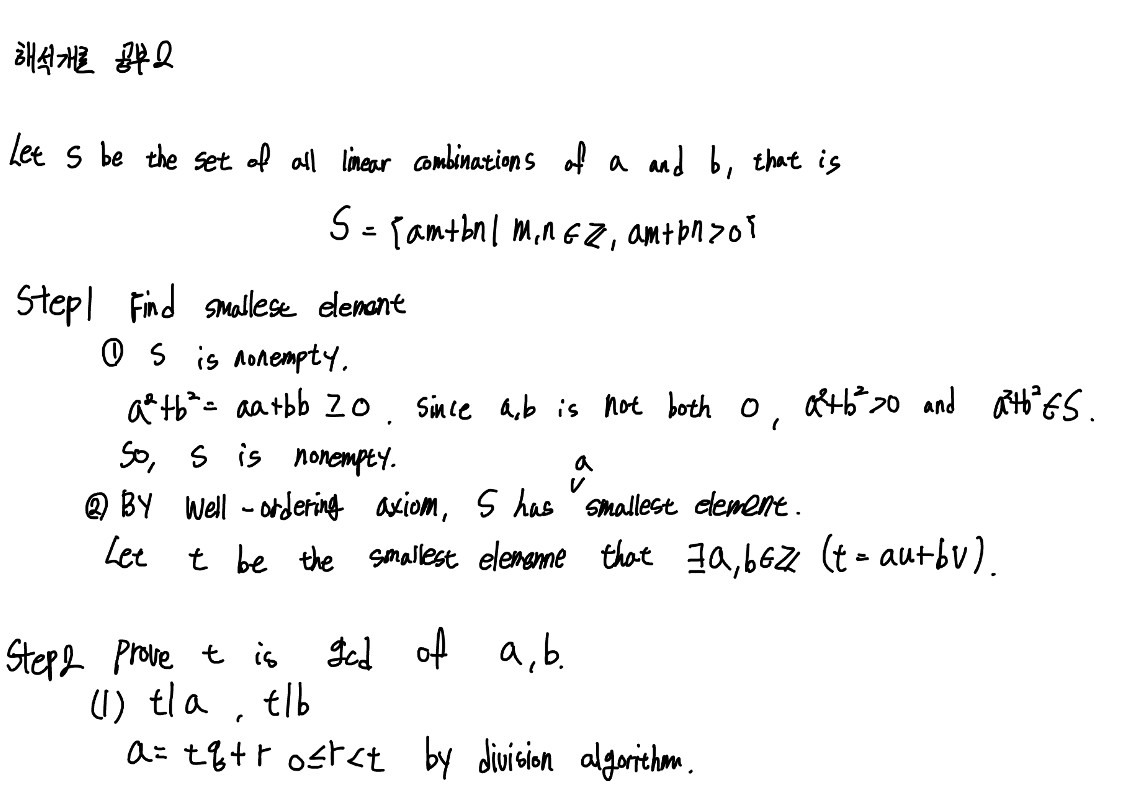 해석개론 공부 2
Let S be the set of all linear combinations of a and b, that is
S = {am+bn | m,n ∈ ℤ, am+bn>0}
Step1 Find smallest element
① S is nonempty.
a²+b² = aa+bb ≥ 0. since a,b is not both 0, a²+b²>0 and a²+b²∈S.
So, S is nonempty.
② BY Well-ordering axiom, S has a smallest element.
Let t be the smallest that ∃a,b∈ℤ (t = au+bv).
Step2 Prove t is gcd of a,b.
(1) t|a , t|b
a = tq+r 0≤r<t by division algorithm.